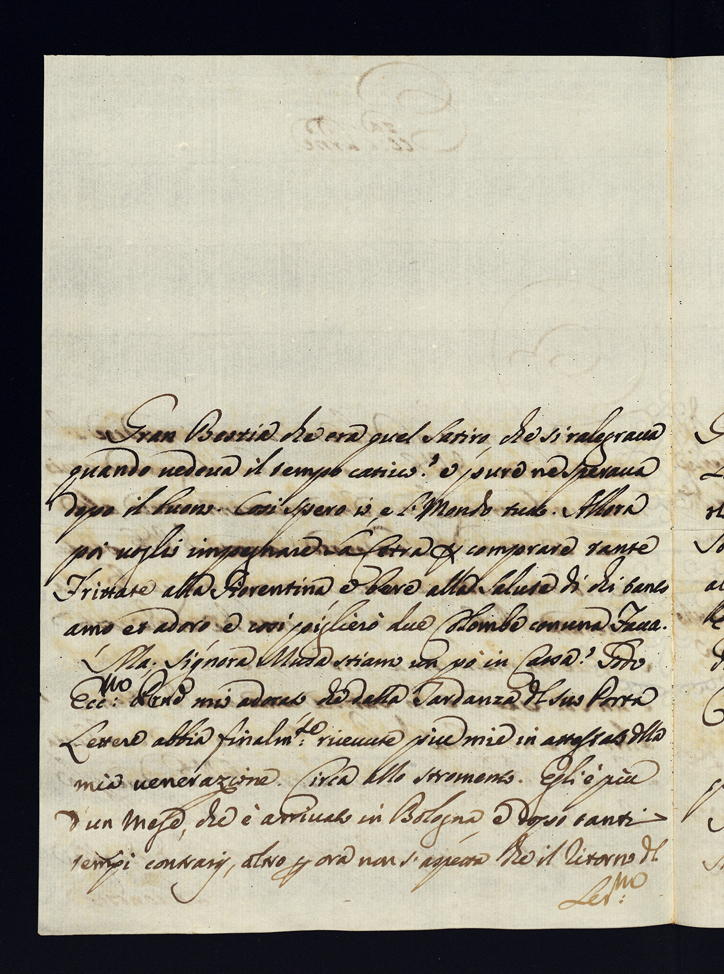 Gran Bestia che era quel Satiro, che si ralegraua
quando uedeua il tempo catiuo: e pure ne speraua
dopo il buono. Cosi spero io e l'Mondo tutto. Allora
poi uoglio impegnare la Cetra p comprare tante
Frittate alla Fiorentina e bere alla Salute di chi tanto
amo et adoro e cosi piglierò due Colombe con una Faua.
Ma, Signora Musa stiamo un pò in Casa: Godo
Ecc:mo mio adorato che dalla Tardanza del suo Porta
Lettere abbia finalm:te riceuute piu mie in attestato della
mia uenerazione. Circa allo stromento. Egli è piu
d'un Mese, che è arriuato in Bologna e dopo tanti
tempi contrarij, altro p ora non s'aspetta che il Ritorno del
Ser:mo